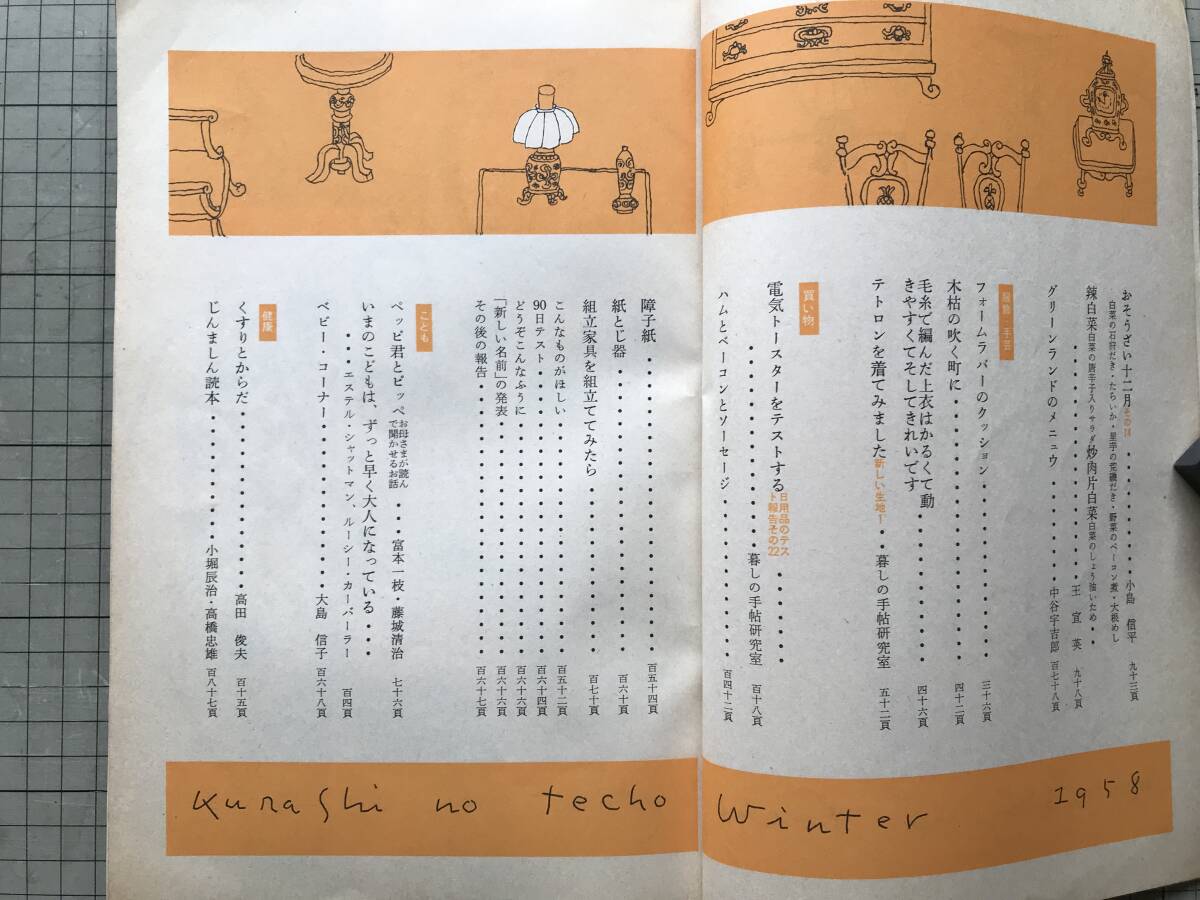 おそうざい十二月 その14 ・・・・・・・小島 信平 九十三頁
白菜の石狩だき・たらいか・里芋の花磯だき・野菜のベーコン煮・大根めし
辣白菜 白菜の唐辛子入りサラダ 炒肉片白菜 白菜のしょう油いため・・王 宜 英 九十八頁
グリーンランドのメニュウ・・・・・・・中谷宇吉郎 百七十八頁
服飾・手芸
フォームラバーのクッション・・・・・・・・・・三十六頁
木枯の吹く町に・・・・・・・・・・・・・・四十二頁
毛糸で編んだ上衣はかるくて動
きやすくてそしてきれいです・・・・・・・・四十六頁
テトロンを着てみました 新しい生地1・・暮しの手帖研究室 五十二頁
買い物
電気トースターをテストする 日用品のテス
ト報告その22・・・・・・暮しの手帖研究室 百十八頁
ハムとベーコンとソーセージ・・・・・・・・・・百四十二頁
障子紙・・・・・・・・・・・・・・・・百五十四頁
紙とじ器・・・・・・・・・・・・・・・百六十頁
組立家具を組立ててみたら・・・・・・・・・百七十頁
こんなものがほしい・・・・・・・・・・・・百五十二頁
90日テスト・・・・・・・・・・・・・・百六十四頁
どうぞこんなふうに・・・・・・・・・・・・百六十六頁
「新しい名前」の発表・・・・・・・・・・・百六十六頁
その後の報告・・・・・・・・・・・・・・百六十七頁
こども
ペッピ君とピッペ お母さまが読ん
で聞かせるお話・・・富本一枝・藤城清治 七十六頁
いまのこどもは、ずっと早く大人になっている・・・
・・・エステル・シャットマン、ルーシー・カーバーラー 百四頁
ベビー・コーナー・・・・・・・・・大島 信子 百六十八頁
健康
くすりとからだ・・・・・・・・・・高田 俊夫 百十五頁
じんましん読本・・・・・・・・小堀辰治・高橋忠雄 百八十七頁
Kurashi no techo Winter 1958